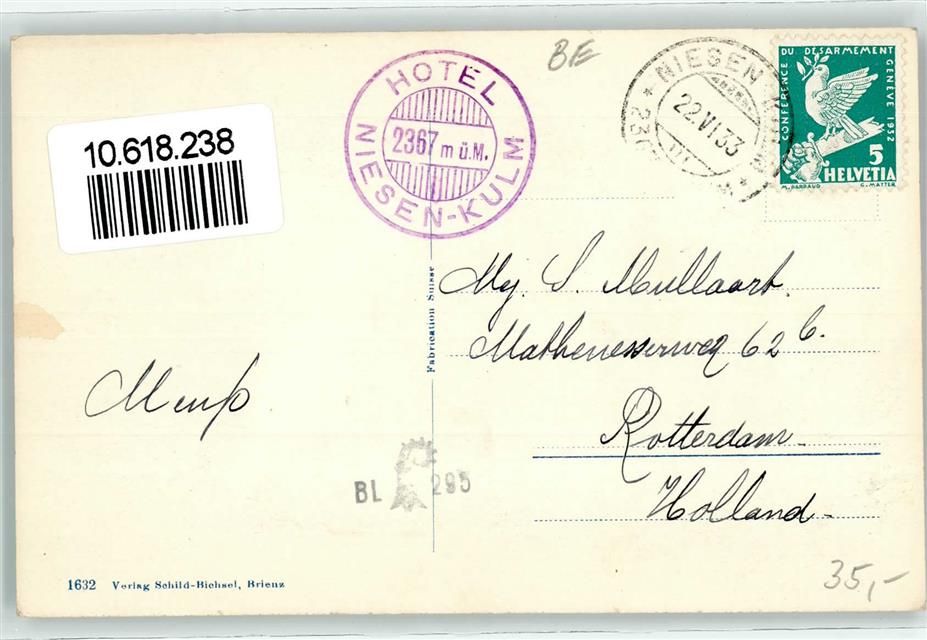 10.618.238
HOTEL
2367 m ü.M.
NIESEN-KULM
BE
NIESEN
22.VI.33
CONFERENCE DU DESARMEMENT GENEVE 1932
5
HELVETIA
M. BARRAUD G. MATTER
Fabrication Suisse
Mej. S. Mullaart.
Mathenesserweg 62 b.
Rotterdam
Holland
BL 295
1632 Verlag Schild-Bichsel, Brienz
35,-